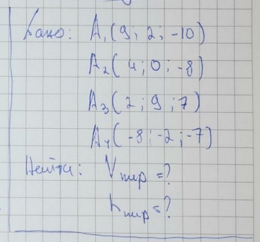 Дано: A₁(9; 2; -10)
A₂(4; 0; -8)
A₃(2; 9; 7)
A₄(-8; -2; -7)
Найти: Vпир = ?
hпир = ?